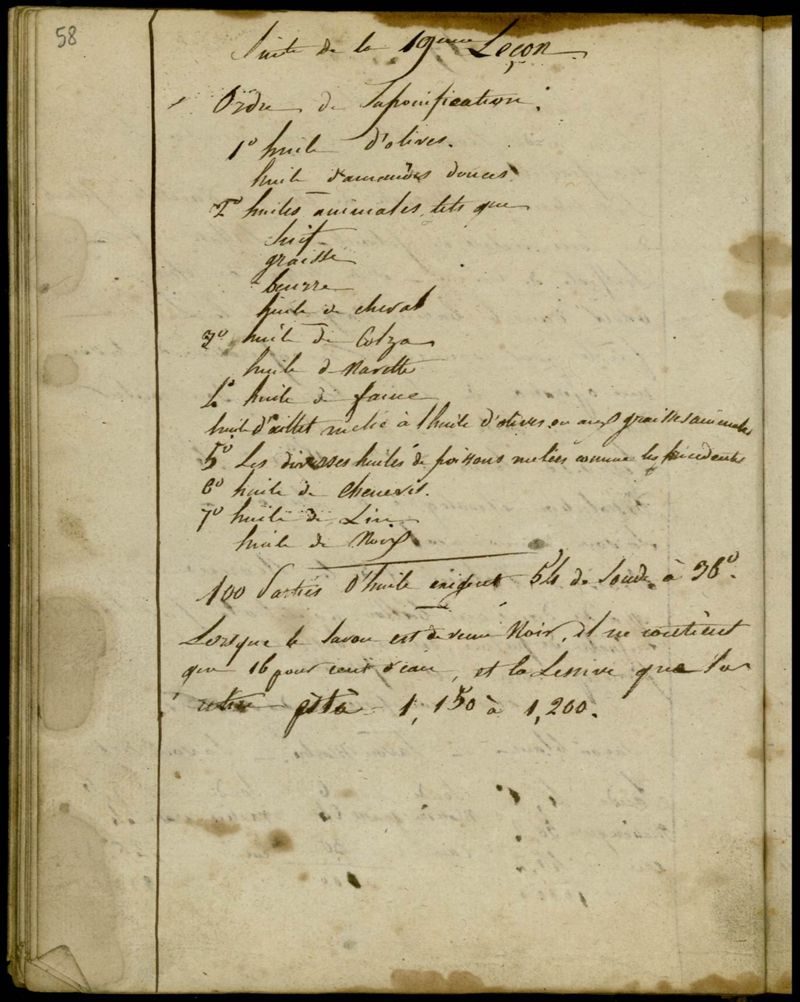 58
Suite de la 19eme Leçon
Ordre de Saponification.
1° huile d'olives.
huile d'amandes douces
2° huiles animales, tels que
Suif
graisse
beurre
huile de cheval
3° huile de Colza
huile de Navette
4° huile de faine
huile d'œillet melée à l'huile d'olives ou aux graisses animales
5° Les diverses huiles de poissons melées comme les précédentes
6° huile de chenevis.
7° huile de Lin
huile de Noix
100 Parties d'huile exigent 54 de Soude à 36°.
Lorsque le Savon est devenu Noir, il ne contient
que 16 pour cent d'eau, et la Lessive que l'on
retire est à 1,150 à 1,200.